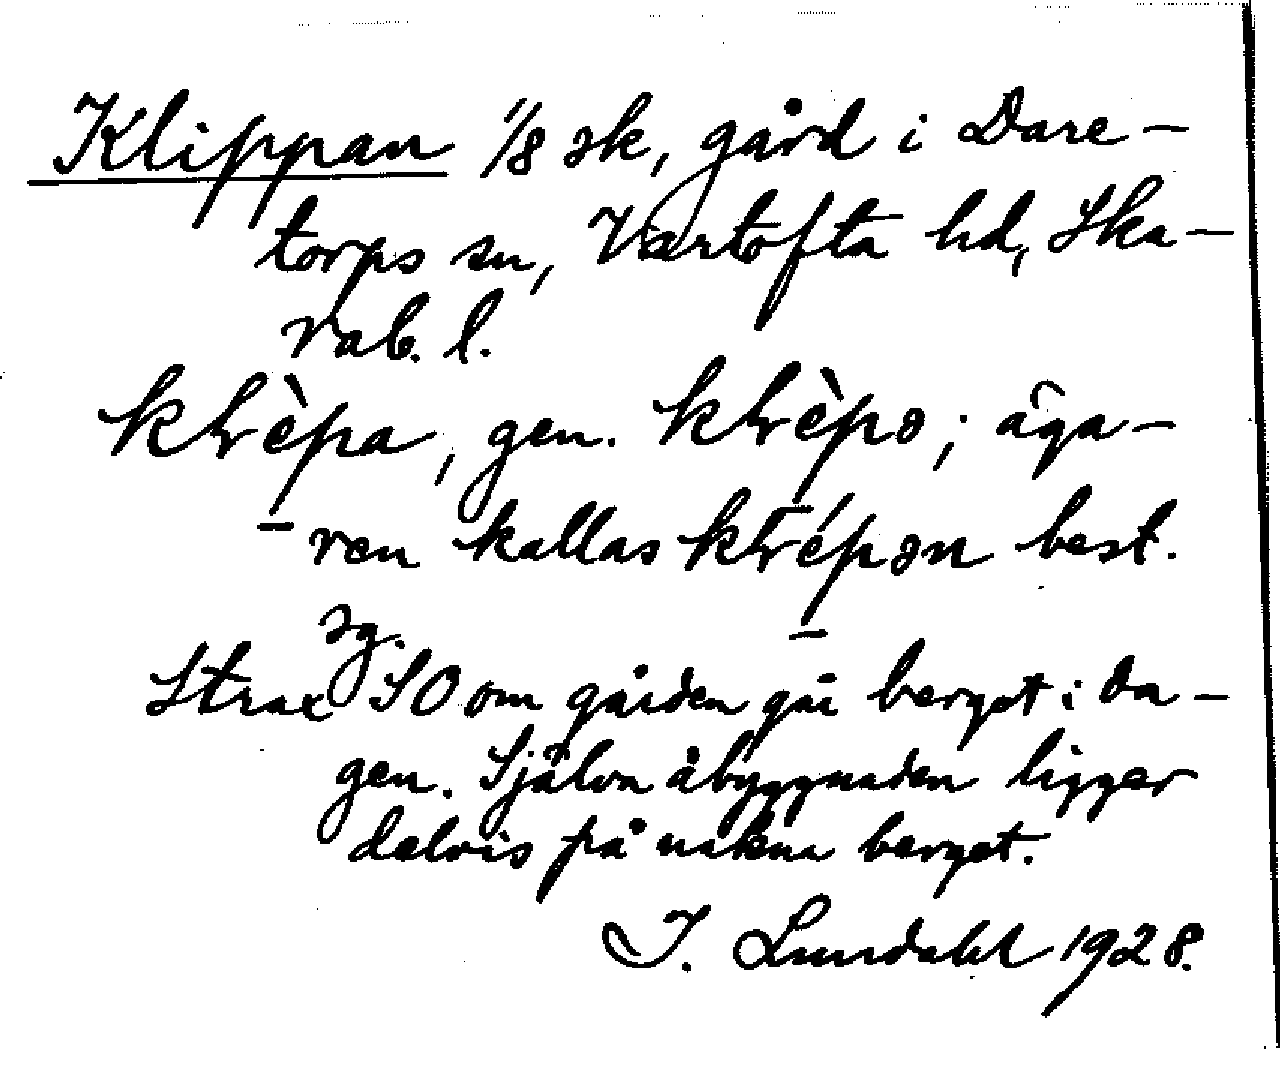 Klippan 1/8 sk, gård i Dare-
torps sn, Vartofta hd, Ska-
rab. l.
klèpa, gen. klèpə; äga-
ren kallas klépən best.
sg.
Strax SO om gården går berget i da-
gen. Själva åbyggnaden ligger
delvis på nakna berget.
I. Lundahl 1928.